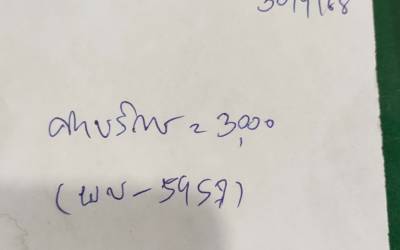 30/9/68
ค่าบริการ = 3,000
(ผบ - 5957)